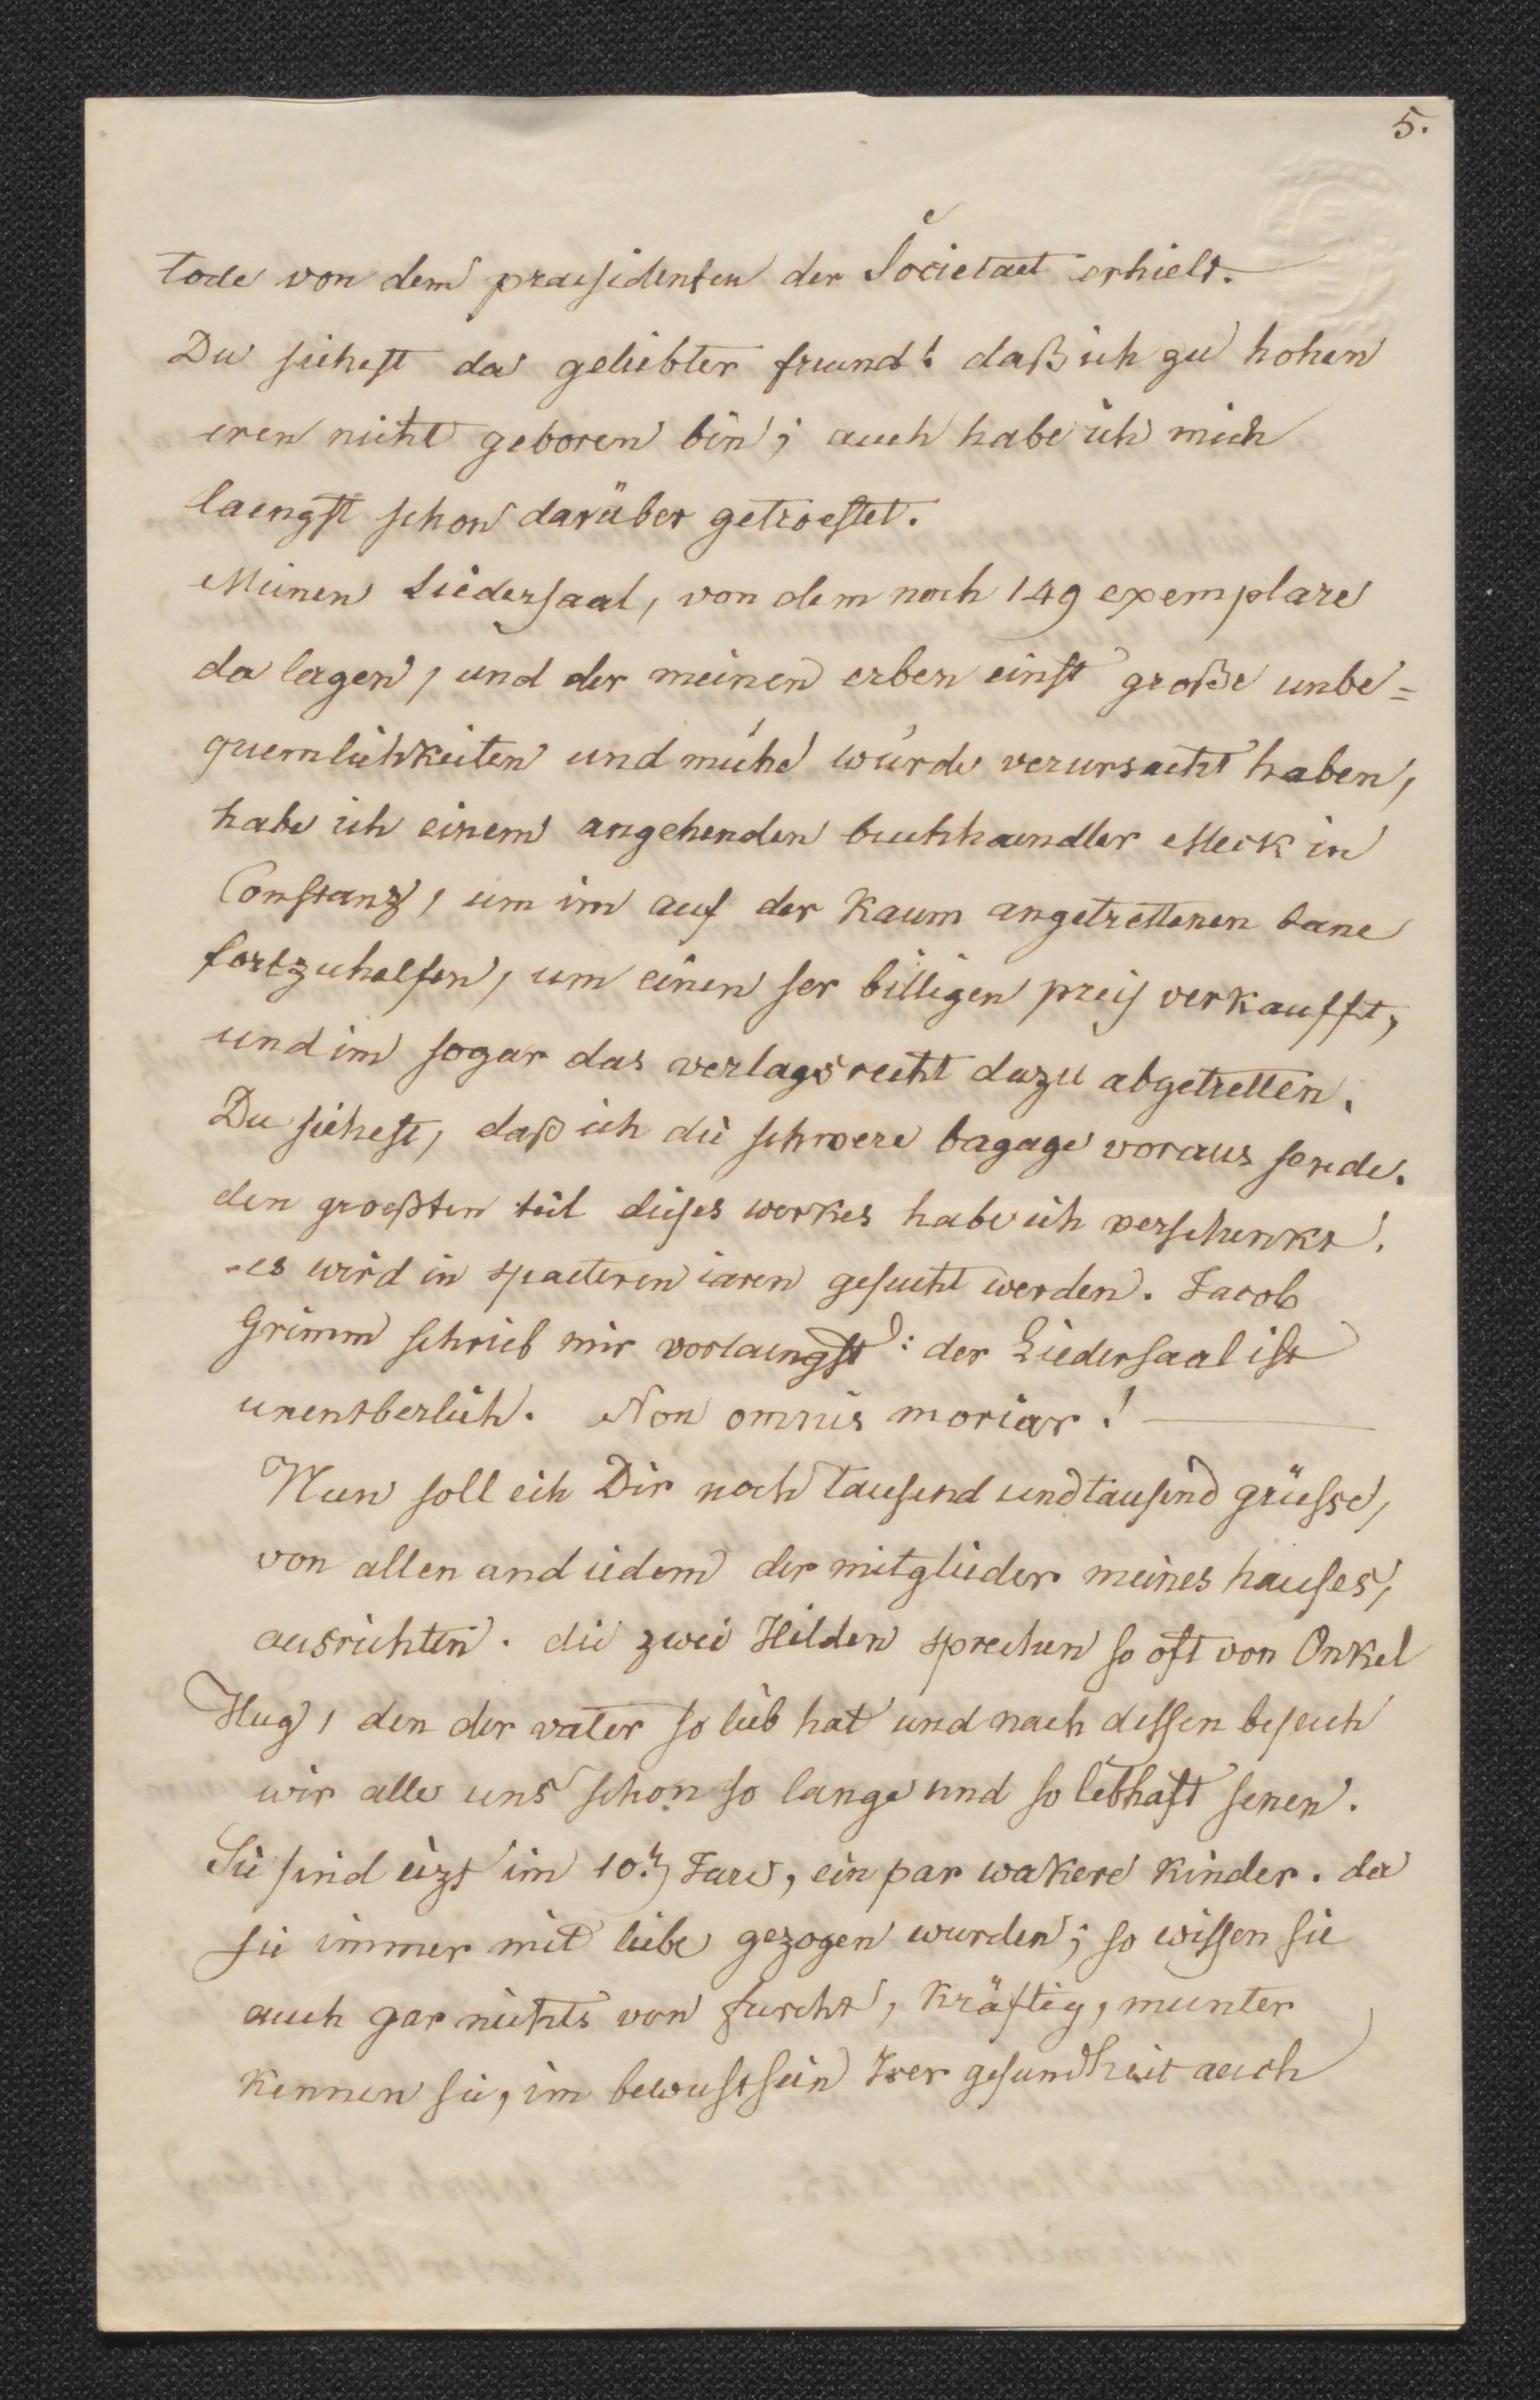 5.
tode von dem praesidenten der Societaet erhielt.
Du siehest da geliebter freund! daß ich zu hohen
eren nicht geboren bin; auch habe ich mich
laengst schon darüber getroestet.
Meinen Liedersaal, von dem noch 149 exemplare
da lagen, und der meinen erben einst große unbe=
quemlichkeiten und mühe würde verursacht haben,
habe ich einem angehenden buchhaendler Meck in
Constanz, um im auf der kaum angetrettenen bane
fortzuhelfen, um einen ser billigen preis verkaufft,
und im sogar das verlagsrecht dazu abgetretten.
Du siehest, daß ich die schwere bagage voraus sende.
den groeßten teil dieses werkes habe ich verschenkt.
es wird in spaeteren iaren gesucht werden. Jacob
Grimm schrieb mir vorlaengst: der Liedersaal ist
unentberlich. Non omnis moriar! —
Nun soll ich Dir noch tausend und tausend grüsse,
von allen and iedem der mitglieder meines hauses,
ausrichten. die zwei Hilden sprechen so oft von Onkel
Hug, den der vater so lieb hat und nach dessen besuch
wir alle uns schon so lange und so lebhaft senen.
Sie sind iezt im 10.ⁿ Jare, ein par wakere kinder. da
sie immer mit liebe gezogen wurden; so wissen sie
auch gar nichts von furcht, kräftig, munter
kennen sie, im bewustsein Irer gesundheit auch